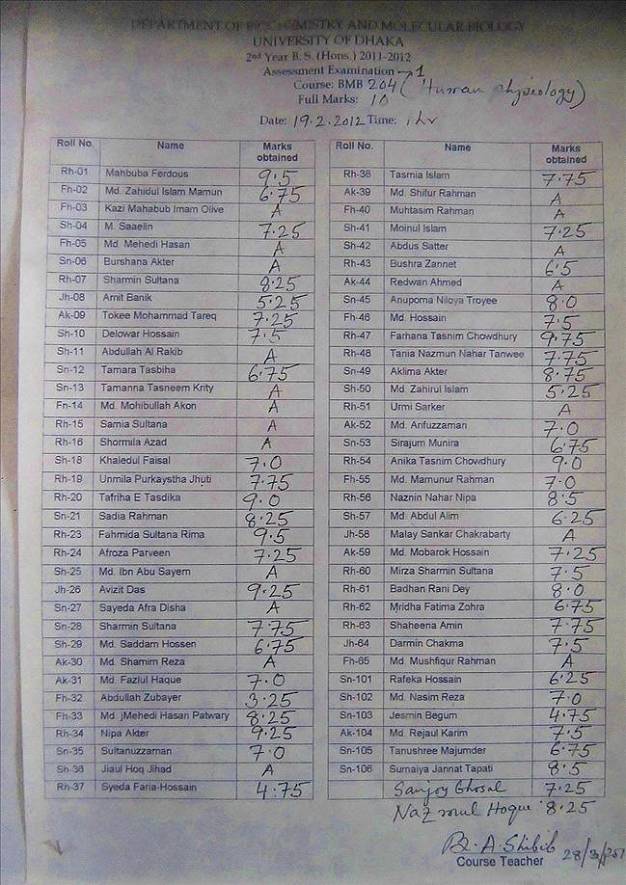 DEPARTMENT OF BIOCHEMISTRY AND MOLECULAR BIOLOGY
UNIVERSITY OF DHAKA
2nd Year B. S. (Hons.) 2011-2012
Assessment Examination → 1
Course: BMB 204 (Human physiology)
Full Marks: 10
Date: 19.2.2012 Time: 1 hr
Roll No. Name Marks obtained
Rh-01 Mahbuba Ferdous 9.5
Fh-02 Md. Zahidul Islam Mamun 6.75
Fh-03 Kazi Mahabub Imam Olive A
Sh-04 M. Saaelin 7.25
Fh-05 Md. Mehedi Hasan A
Sn-06 Burshana Akter A
Rh-07 Sharmin Sultana 8.25
Jh-08 Amit Banik 5.25
Ak-09 Tokee Mohammad Tareq 7.25
Sh-10 Delowar Hossain 7.5
Sh-11 Abdullah Al Rakib A
Sn-12 Tamara Tasbiha 6.75
Sn-13 Tamanna Tasneem Krity A
Fn-14 Md. Mohibullah Akon A
Rh-15 Samia Sultana A
Rh-16 Shormila Azad A
Sh-18 Khaledul Faisal 7.0
Rh-19 Unmila Purkaystha Jhuti 7.75
Rh-20 Tafriha E Tasdika 9.0
Sn-21 Sadia Rahman 8.25
Rh-23 Fahmida Sultana Rima 9.5
Rh-24 Afroza Parveen 7.25
Sh-25 Md. Ibn Abu Sayem A
Jh-26 Avizit Das 9.25
Sn-27 Sayeda Afra Disha A
Sn-28 Sharmin Sultana 7.75
Sh-29 Md. Saddam Hossen 6.75
Ak-30 Md. Shamim Reza A
Ak-31 Md. Fazlul Haque 7.0
Fh-32 Abdullah Zubayer 3.25
Fh-33 Md. jMehedi Hasan Patwary 8.25
Rh-34 Nipa Akter 9.25
Sn-35 Sultanuzzaman 7.0
Sh-36 Jiaul Hoq Jihad A
Rh-37 Syeda Faria-Hossain 4.75
Roll No. Name Marks obtained
Rh-38 Tasmia Islam 7.75
Ak-39 Md. Shifur Rahman A
Fh-40 Muhtasim Rahman A
Sh-41 Moinul Islam 7.25
Sh-42 Abdus Satter A
Rh-43 Bushra Zannet 6.5
Ak-44 Redwan Ahmed A
Sn-45 Anupoma Niloya Troyee 8.0
Fh-46 Md. Hossain 7.5
Rh-47 Farhana Tasnim Chowdhury 9.75
Rh-48 Tania Nazmun Nahar Tanwee 7.75
Sn-49 Aklima Akter 8.75
Sh-50 Md. Zahirul Islam 5.25
Rh-51 Urmi Sarker A
Ak-52 Md. Arifuzzaman 7.0
Sn-53 Sirajum Munira 6.75
Rh-54 Anika Tasnim Chowdhury 9.0
Fh-55 Md. Mamunur Rahman 7.0
Rh-56 Naznin Nahar Nipa 8.5
Sh-57 Md. Abdul Alim 6.25
Jh-58 Malay Sankar Chakrabarty A
Ak-59 Md. Mobarok Hossain 7.25
Rh-60 Mirza Sharmin Sultana 7.5
Rh-61 Badhan Rani Dey 8.0
Rh-62 Mridha Fatima Zohra 6.75
Rh-63 Shaheena Amin 7.75
Jh-64 Darmin Chakma 7.5
Fh-65 Md. Mushfiqur Rahman A
Sn-101 Rafeka Hossain 6.25
Sh-102 Md. Nasim Reza 7.0
Sn-103 Jesmin Begum 4.75
Ak-104 Md. Rejaul Karim 7.5
Sn-105 Tanushree Majumder 6.75
Sn-106 Sumaiya Jannat Tapati 8.5
Sanjoy Ghosal 7.25
Nazmul Hoque 8.25
A. Shibib
Course Teacher